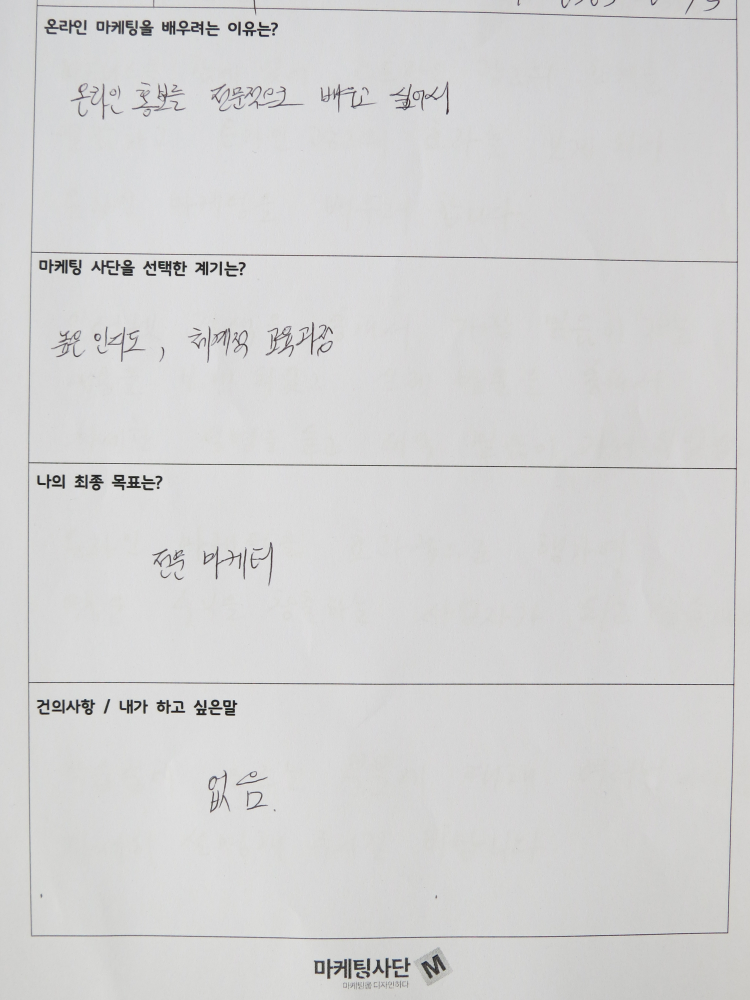 온라인 마케팅을 배우려는 이유는?
온라인 홍보를 전문적으로 배우고 싶어서
마케팅 사단을 선택한 계기는?
높은 인지도, 체계적 교육과정
나의 최종 목표는?
전문 마케터
건의사항 / 내가 하고 싶은말
없음.
마케팅사단 M
마케팅을 디자인하다